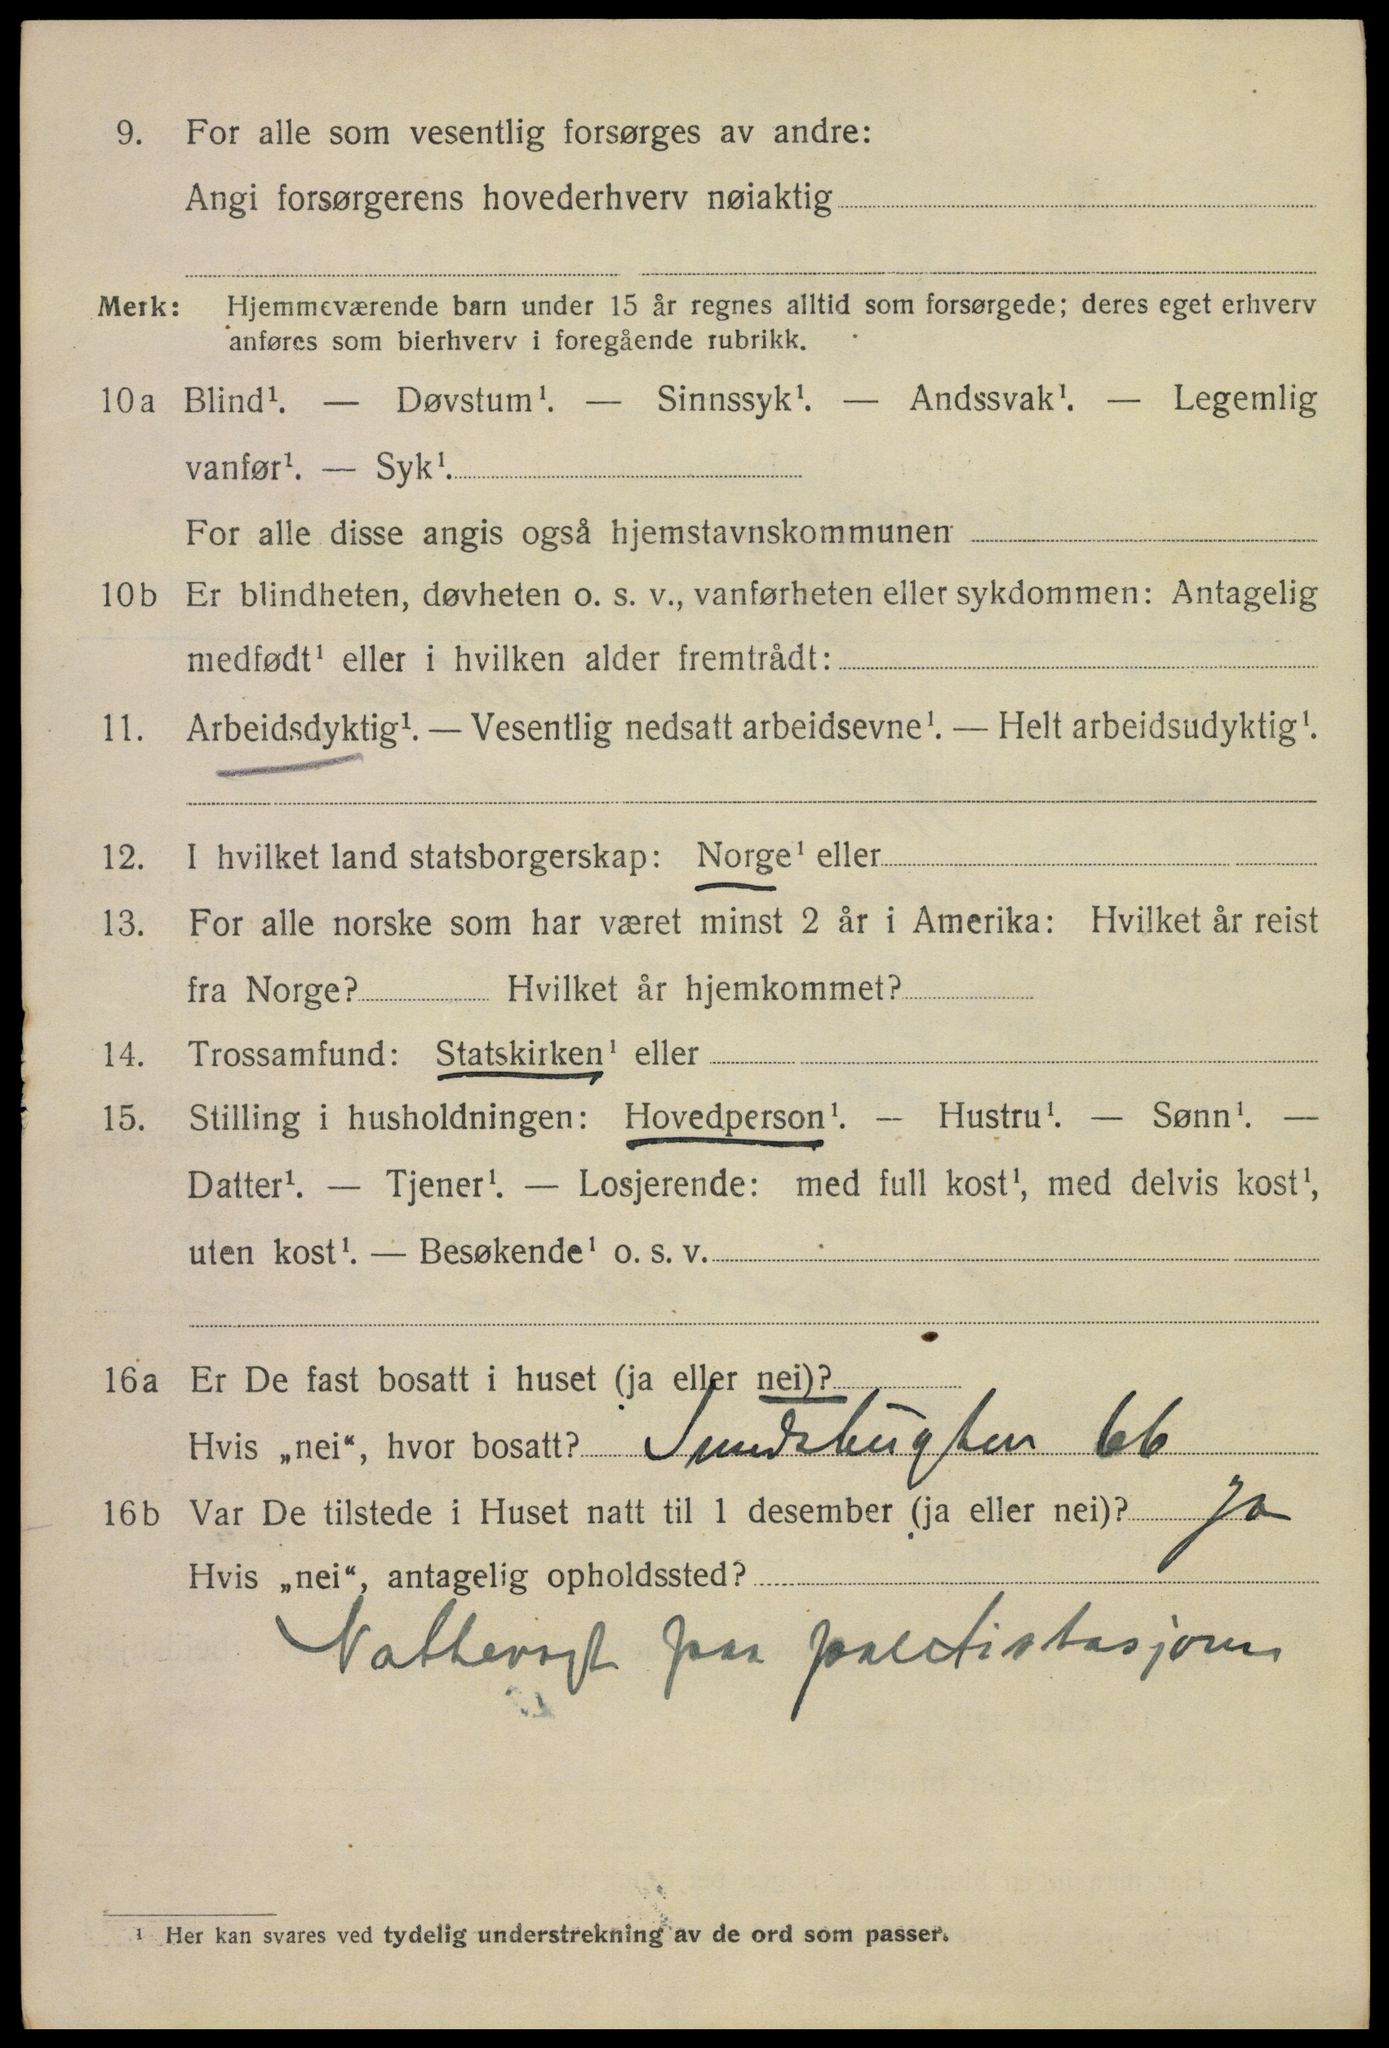 9. For alle som vesentlig forsørges av andre:
Angi forsørgerens hovederhverv nøiaktig
Merk: Hjemmeværende barn under 15 år regnes alltid som forsørgede; deres eget erhverv
anføres som bierhverv i foregående rubrikk.
10a Blind¹. — Døvstum¹. — Sinnssyk¹. — Andssvak¹. — Legemlig
vanfør¹. — Syk¹.
For alle disse angis også hjemstavnskommunen
10b Er blindheten, døvheten o. s. v., vanførheten eller sykdommen: Antagelig
medfødt¹ eller i hvilken alder fremtrådt:
11. Arbeidsdyktig¹. — Vesentlig nedsatt arbeidsevne¹. — Helt arbeidsudyktig¹.
12. I hvilket land statsborgerskap: Norge¹ eller
13. For alle norske som har været minst 2 år i Amerika: Hvilket år reist
fra Norge? Hvilket år hjemkommet?
14. Trossamfund: Statskirken¹ eller
15. Stilling i husholdningen: Hovedperson¹. — Hustru¹. — Sønn¹. —
Datter¹. — Tjener¹. — Losjerende: med full kost¹, med delvis kost¹,
uten kost¹. — Besøkende¹ o. s. v.
16a Er De fast bosatt i huset (ja eller nei)?
Hvis „nei“, hvor bosatt? Sundsbugten 66
16b Var De tilstede i Huset natt til 1 desember (ja eller nei)? ja
Hvis „nei“, antagelig opholdssted?
Nattevagt paa
¹ Her kan svares ved tydelig understrekning av de ord som passer.